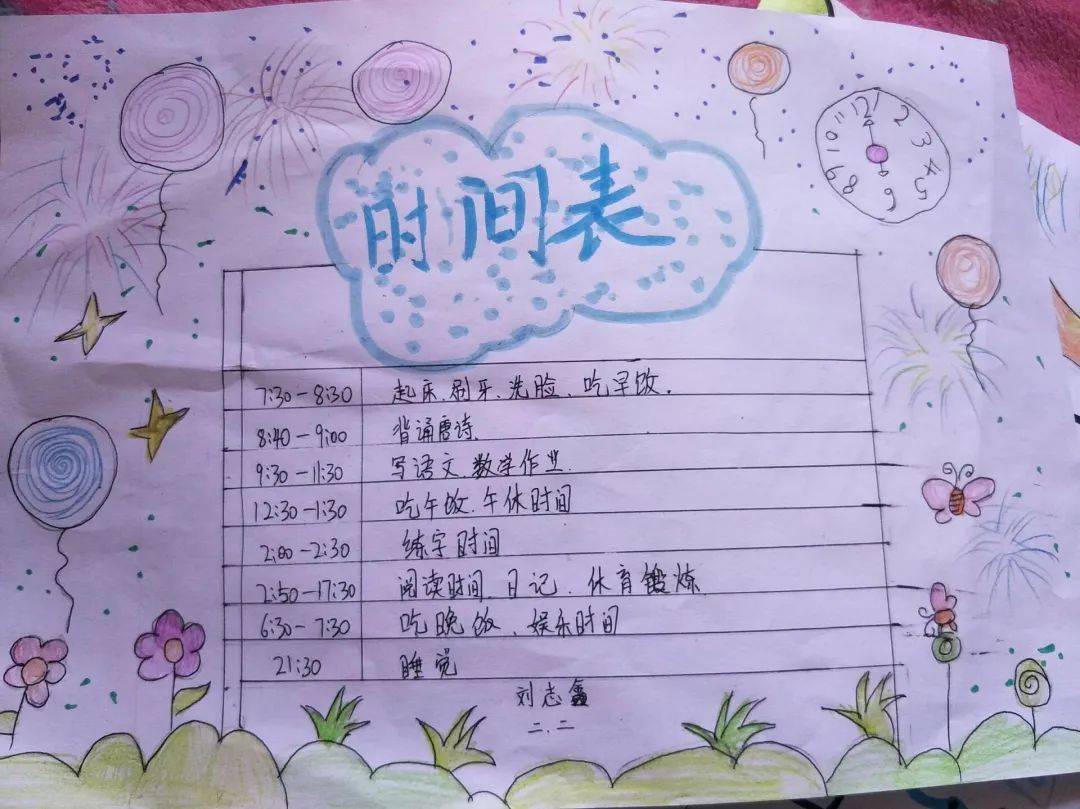 时间表
12 1 2 3 4 5 6 8 9 10 11
7:30－8:30 起床.刷牙、洗脸、吃早饭.
8:40－9:00 背诵唐诗.
9:30－11:30 写语文.数学作业.
12:30-1:30 吃午饭.午休时间
2:00－2:30 练字时间
2:50-17:30 阅读时间.日记.体育锻炼.
6:30－7:30 吃晚饭、娱乐时间
21:30 睡觉
刘志鑫
二.二